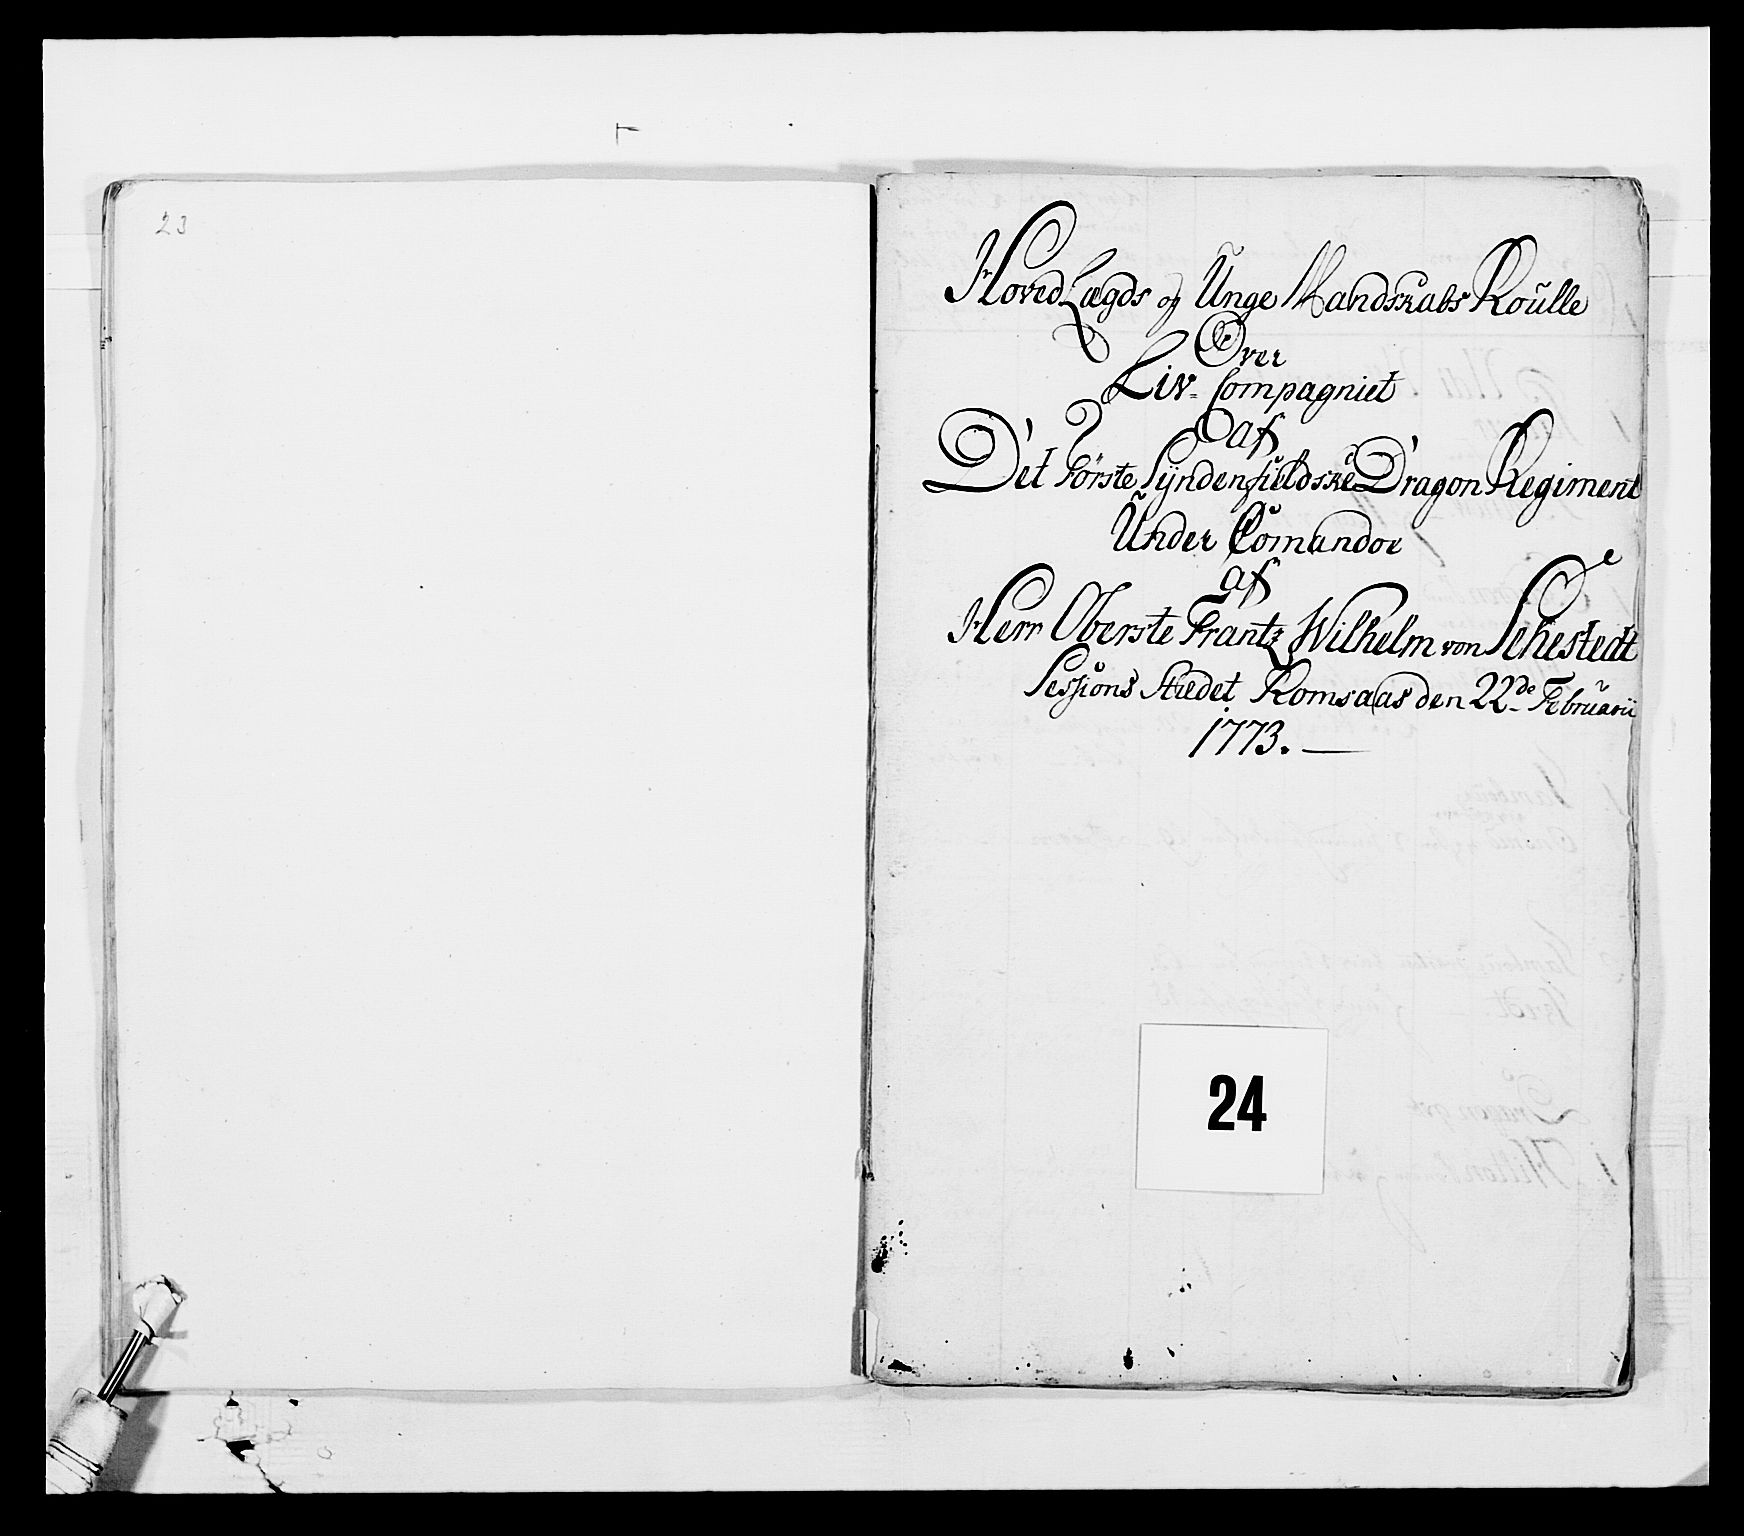 23
Hoved Lægds og Unge Mandskabs Roulle
Over
Liv- Compagniet
af
Det Förste Syndenfieldske Dragon Regiment
Under Comandoe
af
Herr Oberste Frantz Wilhelm von Sehestedt
Sessions Stædet Romsaas den 22de Februarii
1773.
24